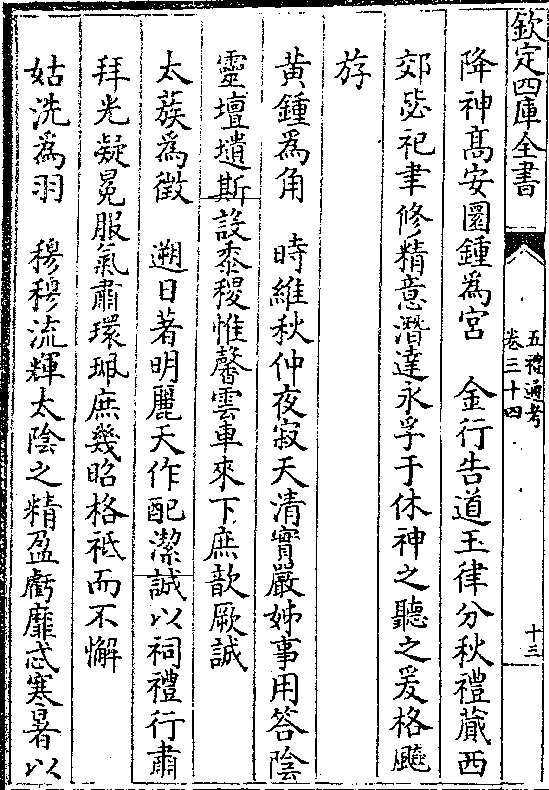 欽定四庫全書
五禮通考
卷三十四
十三
降神髙安圜鍾為宮　金行告遒玉律分秋禮蕆西
郊毖祀聿修精意潛達永孚于休神之聽之爰格飈
斿
黄鍾為角　時維秋仲夜寂天清實嚴姊事用答陰
靈壇壝斯設黍稷惟馨雲車來下庶歆厥誠
太蔟為徵　遡日著明麗天作配潔誠以祠禮行肅
拜光凝冕服氣肅環珮庶幾昭格祇而不懈
姑洗為羽　穆穆流輝太陰之精盈虧靡忒寒暑以